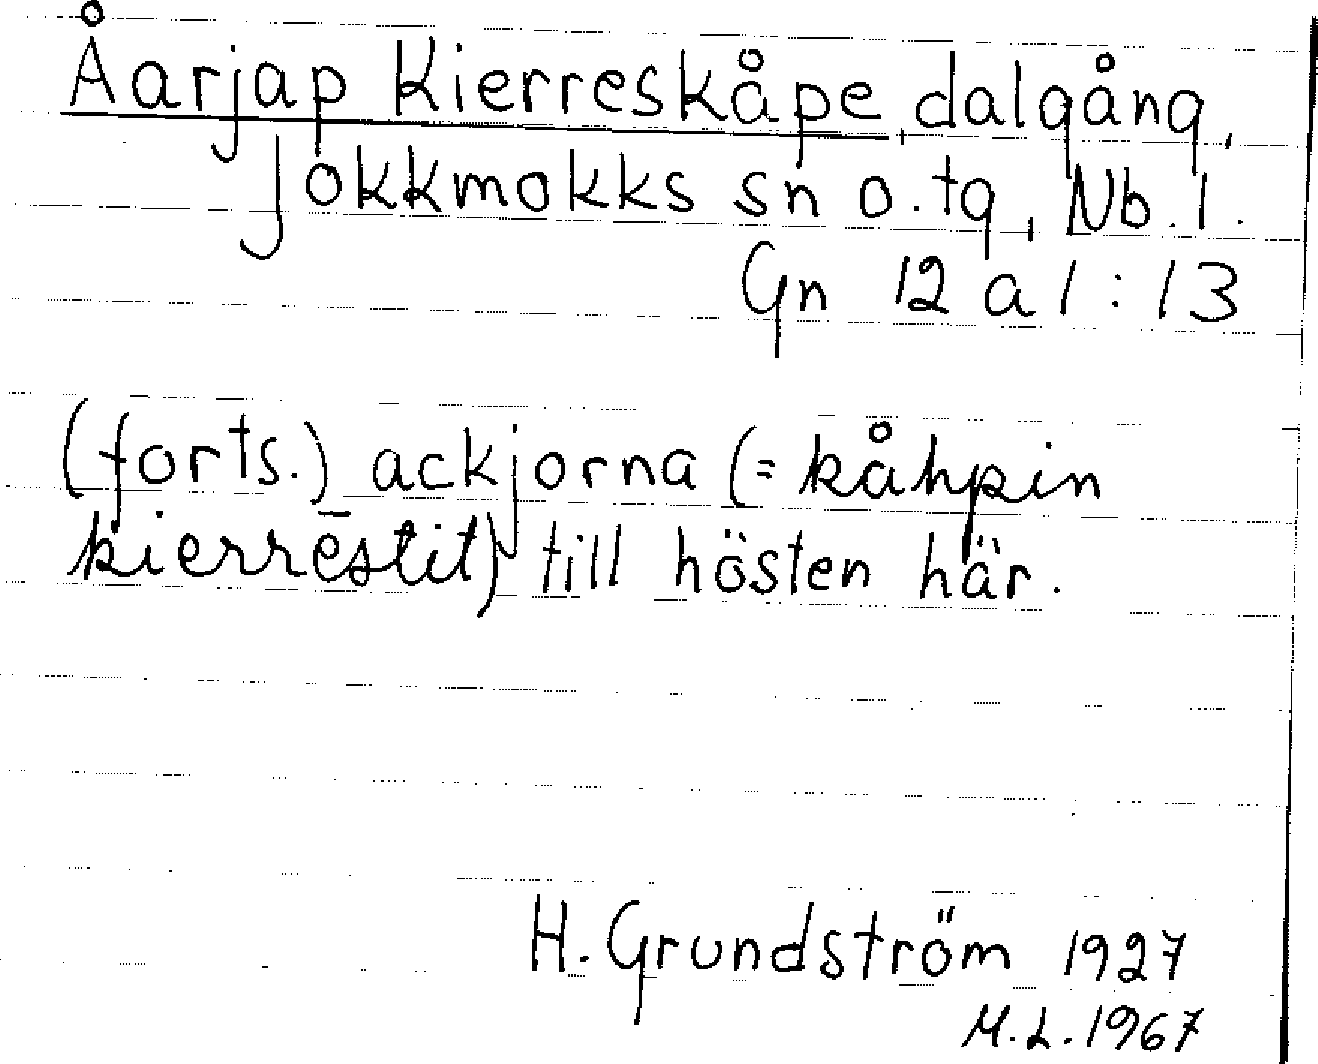 Åarjap Kierreskåpe, dalgång,
Jokkmokks sn o. tg, Nb. l.
Gn 12 a 1:13
(forts.) ackjorna (= kåhpin
kierrēstit) till hösten här.
H. Grundström 1927
M.L. 1967